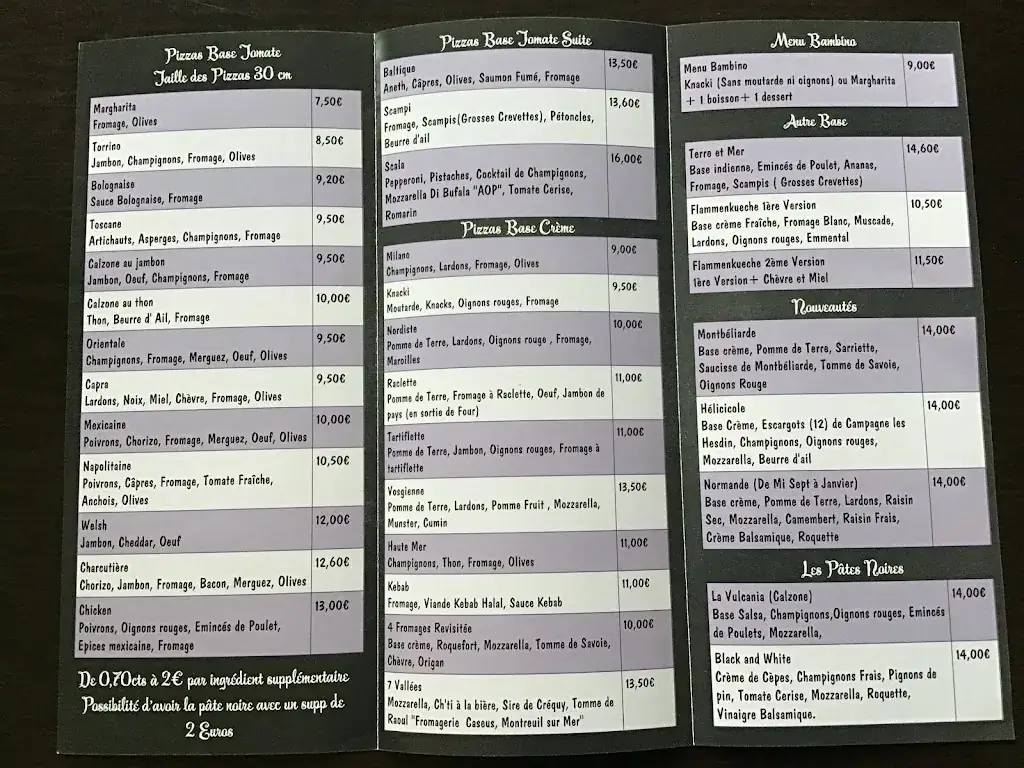 Pizzas Base Tomate
Taille des Pizzas 30 cm
Margharita 7,50€
Fromage, Olives
Torrino 8,50€
Jambon, Champignons, Fromage, Olives
Bolognaise 9,20€
Sauce Bolognaise, Fromage
Toscane 9,50€
Artichauts, Asperges, Champignons, Fromage
Calzone au jambon 9,50€
Jambon, Oeuf, Champignons, Fromage
Calzone au thon 10,00€
Thon, Beurre d' Ail, Fromage
Orientale 9,50€
Champignons, Fromage, Merguez, Oeuf, Olives
Capra 9,50€
Lardons, Noix, Miel, Chèvre, Fromage, Olives
Mexicaine 10,00€
Poivrons, Chorizo, Fromage, Merguez, Oeuf, Olives
Napolitaine 10,50€
Poivrons, Câpres, Fromage, Tomate Fraîche,
Anchois, Olives
Welsh 12,00€
Jambon, Cheddar, Oeuf
Charcutière 12,60€
Chorizo, Jambon, Fromage, Bacon, Merguez, Olives
Chicken 13,00€
Poivrons, Oignons rouges, Emincés de Poulet,
Epices mexicaine, Fromage
De 0,70cts à 2€ par ingrédient supplémentaire
Possibilité d'avoir la pâte noire avec un supp de
2 Euros
Pizzas Base Tomate Suite
Baltique 13,50€
Aneth, Câpres, Olives, Saumon Fumé, Fromage
Scampi 13,60€
Fromage, Scampis(Grosses Crevettes), Pétoncles,
Beurre d'ail
Scala 16,00€
Pepperoni, Pistaches, Cocktail de Champignons,
Mozzarella Di Bufala "AOP", Tomate Cerise,
Romarin
Pizzas Base Crème
Milano 9,00€
Champignons, Lardons, Fromage, Olives
Knacki 9,50€
Moutarde, Knacks, Oignons rouges, Fromage
Nordiste 10,00€
Pomme de Terre, Lardons, Oignons rouge , Fromage,
Maroilles
Raclette 11,00€
Pomme de Terre, Fromage à Raclette, Oeuf, Jambon de
pays (en sortie de Four)
Tartiflette 11,00€
Pomme de Terre, Jambon, Oignons rouges, Fromage à
tartiflette
Vosgienne 13,50€
Pomme de Terre, Lardons, Pomme Fruit , Mozzarella,
Munster, Cumin
Haute Mer 11,00€
Champignons, Thon, Fromage, Olives
Kebab 11,00€
Fromage, Viande Kebab Halal, Sauce Kebab
4 Fromages Revisitée 10,00€
Base crème, Roquefort, Mozzarella, Tomme de Savoie,
Chèvre, Origan
7 Vallées 13,50€
Mozzarella, Ch'ti à la bière, Sire de Créquy, Tomme de
Raoul "Fromagerie Caseus, Montreuil sur Mer"
Menu Bambino
Menu Bambino 9,00€
Knacki (Sans moutarde ni oignons) ou Margharita
+ 1 boisson+ 1 dessert
Autre Base
Terre et Mer 14,60€
Base indienne, Emincés de Poulet, Ananas,
Fromage, Scampis ( Grosses Crevettes)
Flammenkueche 1ère Version 10,50€
Base crème Fraîche, Fromage Blanc, Muscade,
Lardons, Oignons rouges, Emmental
Flammenkueche 2ème Version 11,50€
1ère Version+ Chèvre et Miel
Nouveautés
Montbéliarde 14,00€
Base crème, Pomme de Terre, Sarriette,
Saucisse de Montbéliarde, Tomme de Savoie,
Oignons Rouge
Hélicicole 14,00€
Base Crème, Escargots (12) de Campagne les
Hesdin, Champignons, Oignons rouges,
Mozzarella, Beurre d'ail
Normande (De Mi Sept à Janvier) 14,00€
Base crème, Pomme de Terre, Lardons, Raisin
Sec, Mozzarella, Camembert, Raisin Frais,
Crème Balsamique, Roquette
Les Pâtes Noires
La Vulcania (Calzone) 14,00€
Base Salsa, Champignons,Oignons rouges, Emincés
de Poulets, Mozzarella,
Black and White 14,00€
Crème de Cèpes, Champignons Frais, Pignons de
pin, Tomate Cerise, Mozzarella, Roquette,
Vinaigre Balsamique.